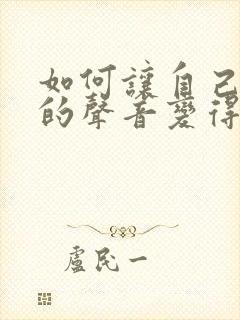 如何讓自己
的聲音變得
盧民一